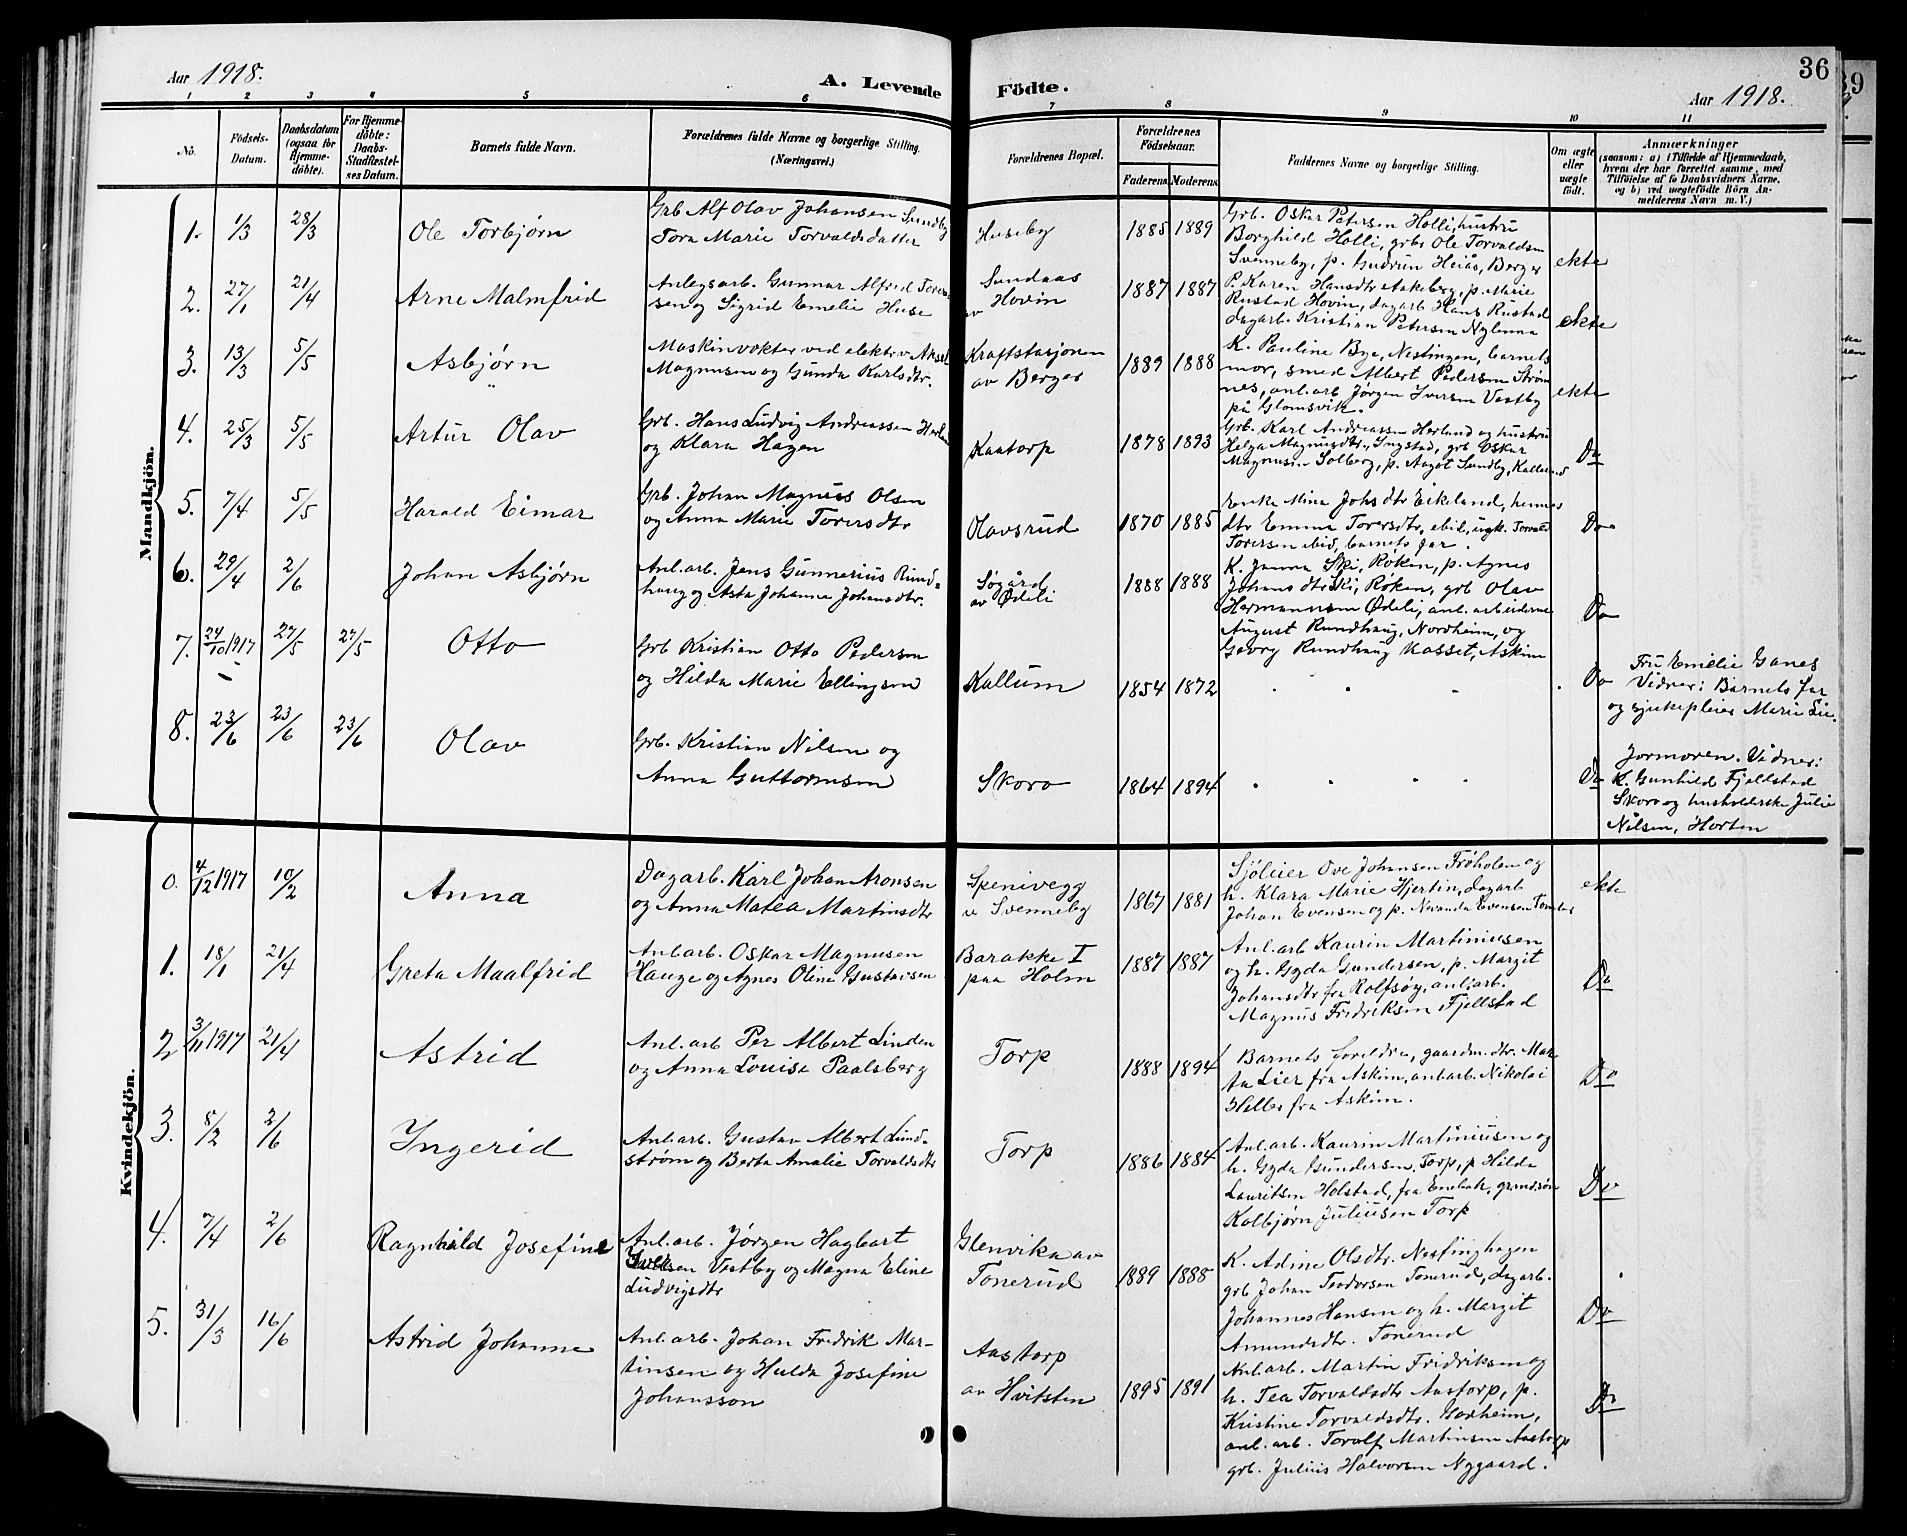 36
Aar 1918.
A. Levende Födte.
Aar 1918.
1 2 3 4 5 6 7 8 9 10 11
No.
Födsels-
Datum.
Daabsdatum
(ogsaa for
Hjemme-
döbte).
For Hjemme-
döbte:
Daabs-
Stadfæstel-
ses Datum.
Barnets fulde Navn.
Forældrenes fulde Navne og borgerlige Stilling.
(Næringsvei.)
Forældrenes Bopæl.
Forældrenes
Födselsaar.
Faderens
Moderens
Faddernes Navne og borgerlige Stilling.
Om ægte
eller
uægte
födt.
Anmærkninger
(saasom: a) i Tilfælde af Hjemmedaab,
hvem der har forrettet samme, med
Tilföielse af to Daabsvidners Navne,
og b) ved uægtefödte Börn An-
melderens Navn m. V.)
Mandkjön.
1. 1/3 28/3 Ole Torbjørn
Grb Alf Olav Johansen Sundby
Tora Marie Torvaldsdatter
Huseby
1885 1889
Grb. Oskar Petersen Holli, hustru
Borghild Holli, grbr Ole Torvaldsen
Svenneby, p. Gudrun Heiås, Berger
ekte
2. 27/1 21/4 Arne Malmfrid
Anlegsarb. Gunnar Alfred Torer-
sen og Sigrid Emelie Huse
Sundaas
av Hovin
1887 1887
P. Karen Hansdtr Aakeberg, p. Marie
Rustad Hovin, dagarb Hans Rustad
dagarb. Kristian Petersen Nylenna
ekte
3. 13/3 5/5 Asbjørn
Maskinvokter ved elektr.v. Aksel
Magnusen og Gunda Karlsdtr.
Kraftstasjonen
av Berger
1889 1888
K. Pauline Bye, Nestingen, barnets
mor, smed Albert Pedersen Strøm
nes, anl.arb Jørgen Iversen Vestby
på Glomsvik.
ekte
4. 25/3 5/5 Artur Olav
Grb. Hans Ludvig Andreassen Herland
og Klara Hagen
Kaatorp
1878 1893
Grb. Karl Andreassen Herland og hustru
Helga Magnusdtr., Ingstad, grb Oskar
Magnusen Solberg, p. Aagot Sundby, Kallerud
Do
5. 7/4 5/5 Harald Eimar
Grb. Johan Magnus Olsen
og Anna Marie Torersdtr
Olavsrud
1870 1885
Enke Mina Johsdtr Eikeland, hennes
dtr Emma Torersdtr, ibid, ugk. Torvald
Torersen ibid, barnets far.
Do
6. 29/4 2/6 Johan Asbjørn
Anl.arb. Jens Gunnerius Rund-
haug og Asta Johanne Johansdtr.
Søgård
av Ødeli
1888 1888
K. Janna Ski, Roken, p. Agnes
Johansdtr Ski, Roken, grb Olav
Hermannsen Ødeli, anl. arbeiderne
August Rundhaug, Nordheim, og
Georg Rundhaug Kasset, Askim
Do
7. 24/10 1917 27/5 27/5 Otto
Grb Kristian Otto Pedersen
og Hilda Marie Ellingsen
Kallum
1854 1872
Do
Fru Emelie Ganes
Vidner: Barnets far
og sjukepleier Marie Lie.
8. 23/6 23/6 23/6 Olav
Grb. Kristian Nilsen og
Anna Guttormsen
Skoro
1864 1894
Do
Jormoren. Vidner:
K. Gunhild Fjellstad
Skoro og husholderske Julie
Nilsen, Horten
Kvindekjön.
0. 4/12 1917 10/2 Anna
Dagarb. Karl Johan Aronsen
og Anna Matea Martinsdtr
Spenivegg
u Svenneby
1867 1881
Sjøleier Ove Johansen Frøholen og
h. Klara Marie Hjertin, dagarb
Johan Evensen og p. Nevanda Evensen
ekte
1. 18/1 21/4 Greta Maalfrid
Anl.arb. Oskar Magnusen
Hauge og Agnes Oline Gustavsen
Barakke I
paa Holm
1887 1887
Anl.arb Kaurin Martiniusen
og h. Gyda Gundersen, p. Margit
Johansdtr fra Rolfsøy, anl.arb.
Magnus Fredriksen Fjellstad
Do
2 3/11 1917 21/4 Astrid
Anl.arb Per Albert Linden
og Anna Louisa Paalsberg
Torp
1888 1894
Barnets foreldre, gaardm.dtr. Mar-
ta Lier fra Askim, anl.arb. Nikolai
Heller fra Askim.
Do
3. 8/2 2/6 Ingerid
Anl.arb. Gustav Albert Lund-
strøm og Berta Amalie Torvaldsdtr
Torp
1886 1884
Anl.arb. Kaurin Martiniusen og
h. Gyda Gundersen, Torp, p Hilda
Lauritsen Holstad, fra Enebak, grundssøn
Kolbjørn Juliusen Torp
Do
4. 7/4 2/6 Ragnhild Josefine
Anl.arb. Jørgen Hagbart
Iversen Vestby og Magna Eline
Ludvigsdtr
Glenvika av
Tonerud
1889 1888
K. Adine Olsdtr. Nesfinghagen
grb Johan Teodorsen Tonerud, dagarb.
Johannes Hansen og h. Margit
Amundsdtr. Tonerud
Do
5. 31/3 16/6 Astrid Johanne
Anl.arb. Johan Fredrik Mar-
tinsen og Hulda Josefine
Johansson
Aastorp
av Hvitsten
1895 1891
Anl.arb. Martin Fridriksen og
h. Tea Torvaldsdtr Aastorp, p.
Kristine Torvaldsdtr. Hoxheim,
anl.arb. Torolf Martinsen Aastorp
grb. Julius Halvorsen Nygaard.
Do